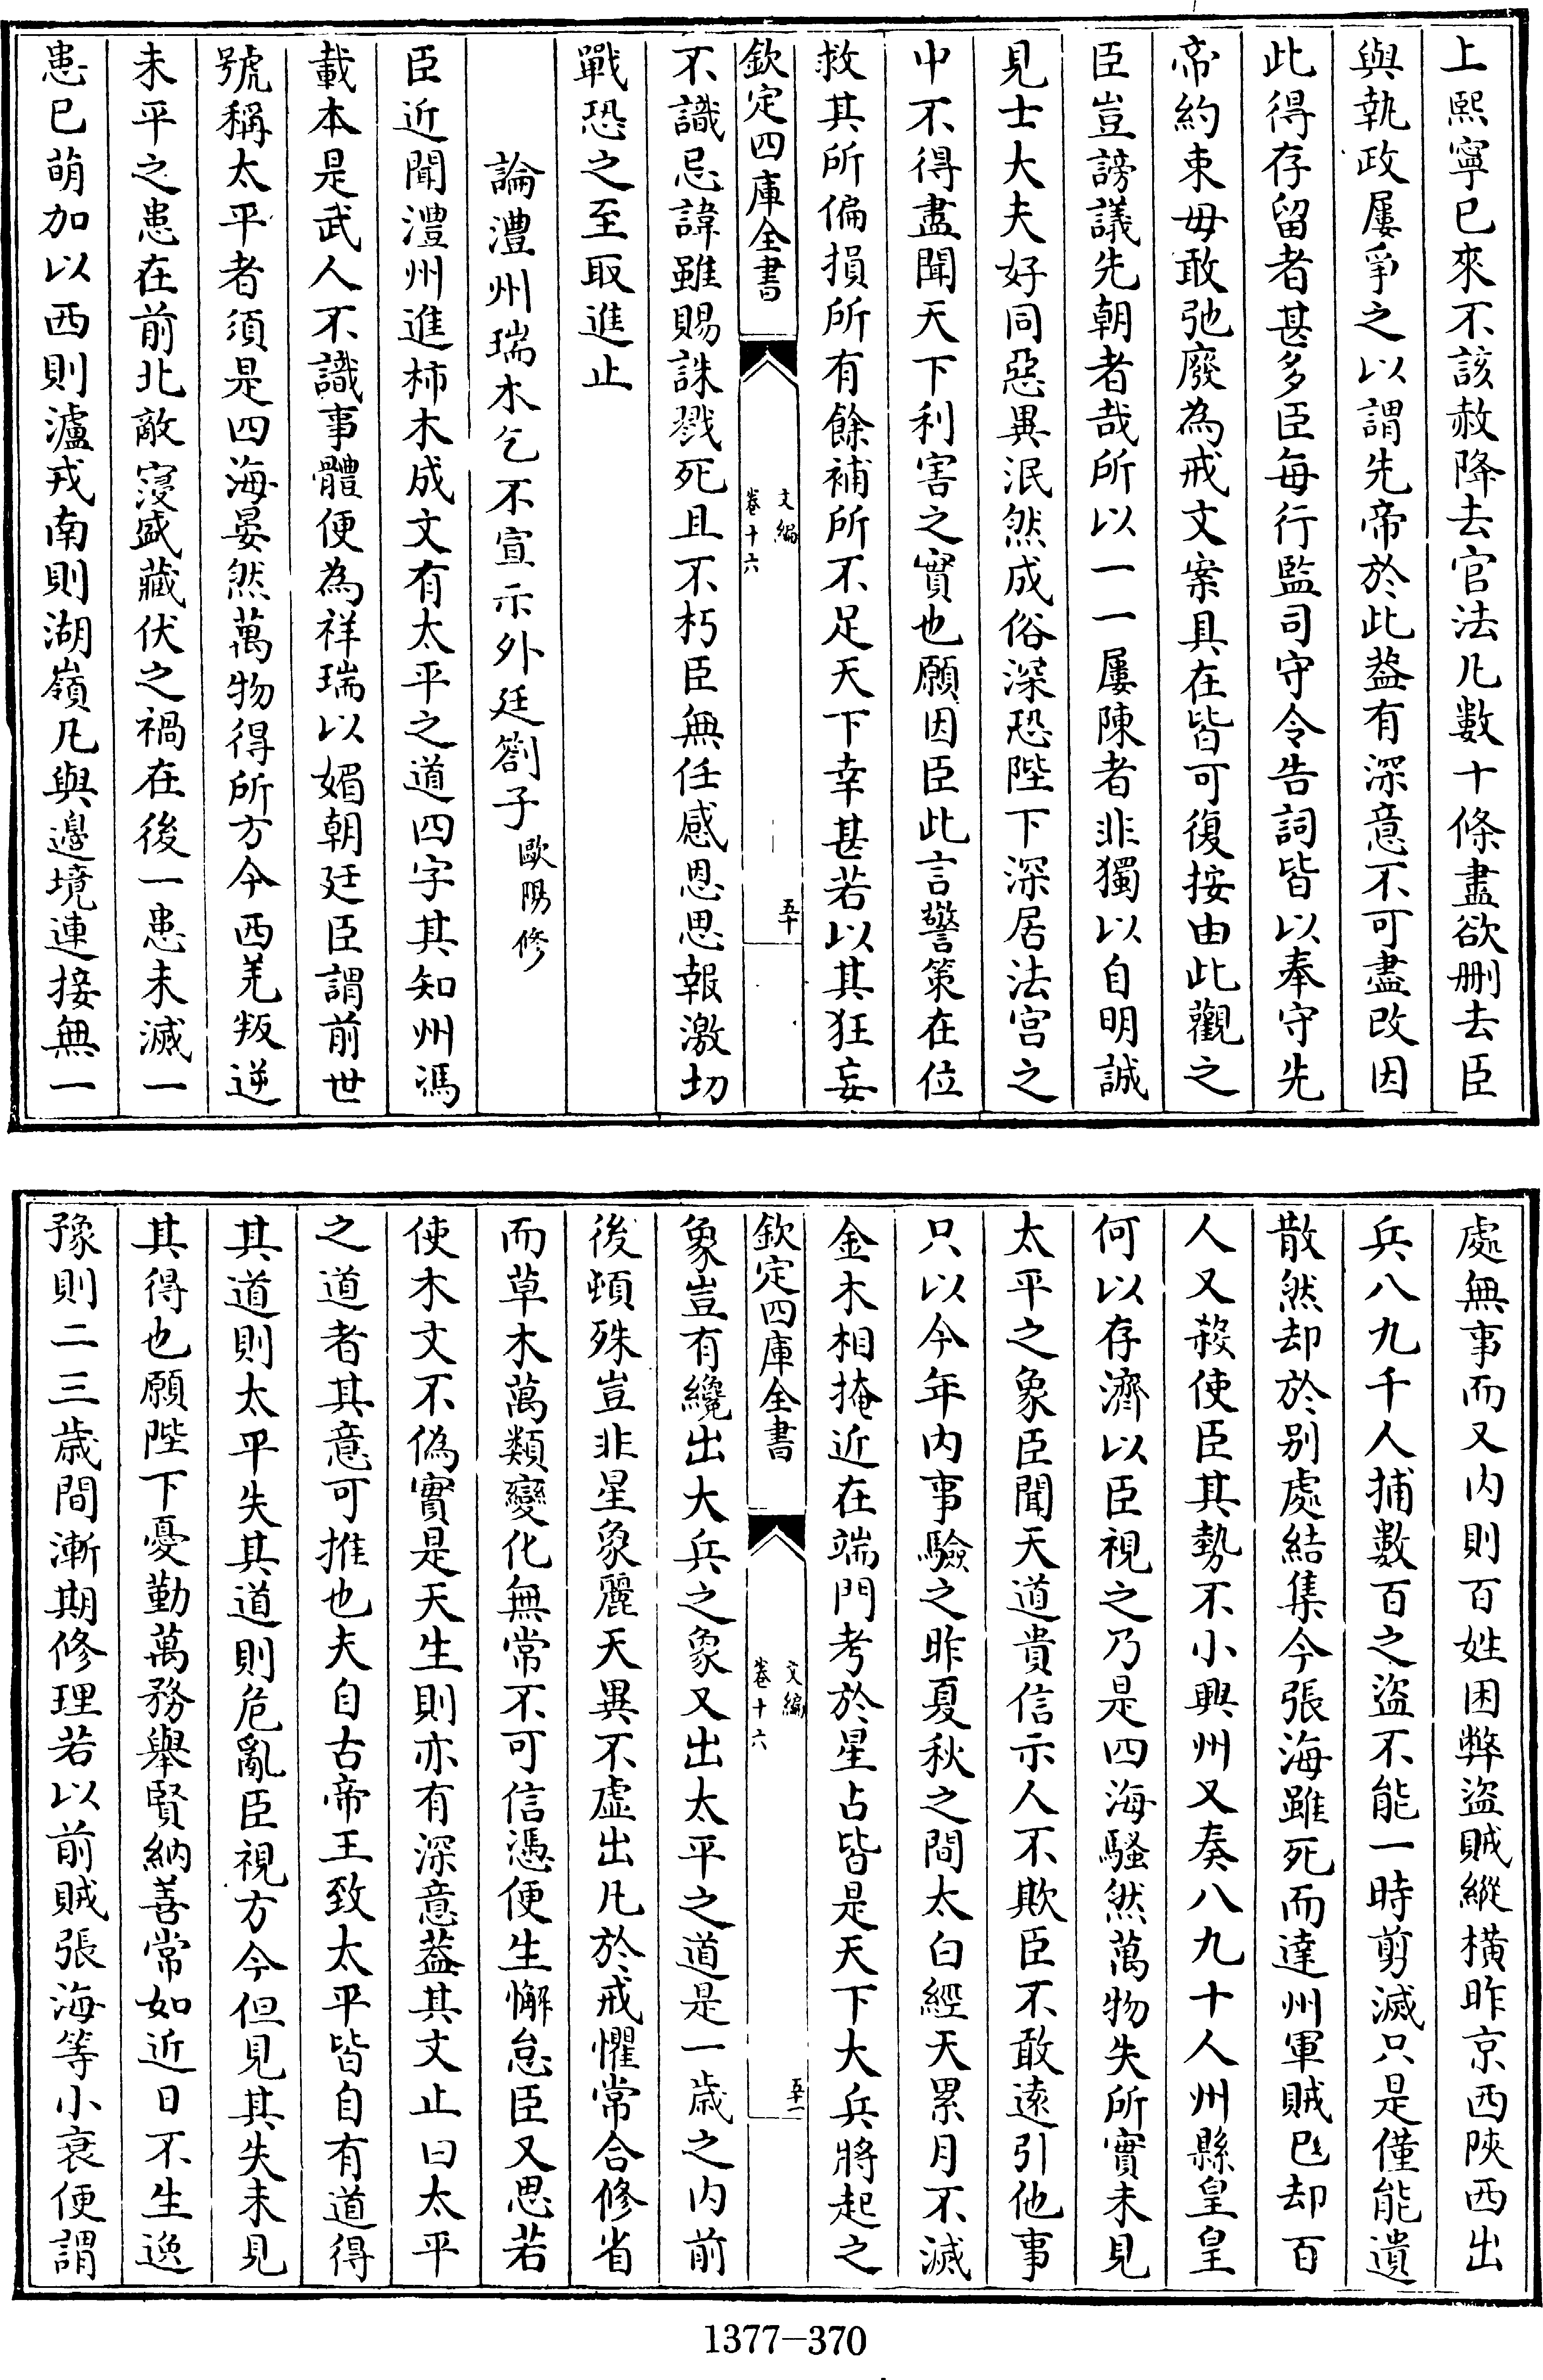 上熙寧已來不該赦降去官法凡數十條盡欲刪去臣
與執政屢爭之以謂先帝於此葢有深意不可盡改因
此得存留者甚多臣每行監司守令告詞皆以奉守先
帝約束毋敢弛廢為戒文案具在皆可復按由此觀之
臣豈謗議先朝者哉所以一一屢陳者非獨以自明誠
見士大夫好同惡異泯然成俗深恐陛下深居法宫之
中不得盡聞天下利害之實也願因臣此言警策在位
救其所偏損所有餘補所不足天下幸甚若以其狂妄
欽定四庫全書
文編
卷十六
五十
不識忌諱雖賜誅戮死且不朽臣無任感恩思報激切
戰恐之至取進止
論澧州瑞木乞不宣示外廷劄子歐陽修
臣近聞澧州進柿木成文有太平之道四字其知州馮
載本是武人不識事體便為祥瑞以媚朝廷臣謂前世
號稱太平者須是四海晏然萬物得所方今西羌叛逆
未平之患在前北敵寖盛藏伏之禍在後一患未滅一
患已萌加以西則瀘戎南則湖嶺凡與邊境連接無一
處無事而又内則百姓困弊盜賊縱橫昨京西陜西出
兵八九千人捕數百之盜不能一時剪滅只是僅能遺
散然却於别處結集今張海雖死而達州軍賊已却百
人又殺使臣其勢不小興州又奏八九十人州縣皇皇
何以存濟以臣視之乃是四海騷然萬物失所實未見
太平之象臣聞天道貴信示人不欺臣不敢遠引他事
只以今年内事驗之昨夏秋之間太白經天累月不滅
金木相掩近在端門考於星占皆是天下大兵將起之
欽定四庫全書
文編
卷十六
五十一
象豈有纔出大兵之象又出太平之道是一歲之内前
後頓殊豈非星象麗天異不虛出凡於戒懼常合修省
而草木萬類變化無常不可信憑便生懈怠臣又思若
使木文不偽實是天生則亦有深意葢其文止曰太平
之道者其意可推也夫自古帝王致太平皆自有道得
其道則太平失其道則危亂臣視方今但見其失未見
其得也願陛下憂勤萬務舉賢納善常如近日不生逸
豫則二三歲間漸期修理若以前賊張海等小衰便謂
1377-370